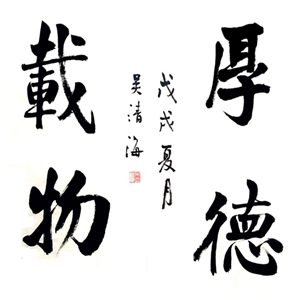 厚德
載物
戊戌夏月
吴清海